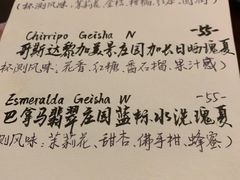 (杯测风味:茉莉花、金桔、柑橘
Chirripo Geisha N -55-
哥斯达黎加美景庄园加长日晒瑰夏
杯测风味:花香、红糖、番石榴、果汁感)
Esmeralda Geisha W -55-
巴拿马翡翠庄园蓝标.水洗瑰夏
测风味:茉莉花、甜杏、佛手柑、蜂蜜)